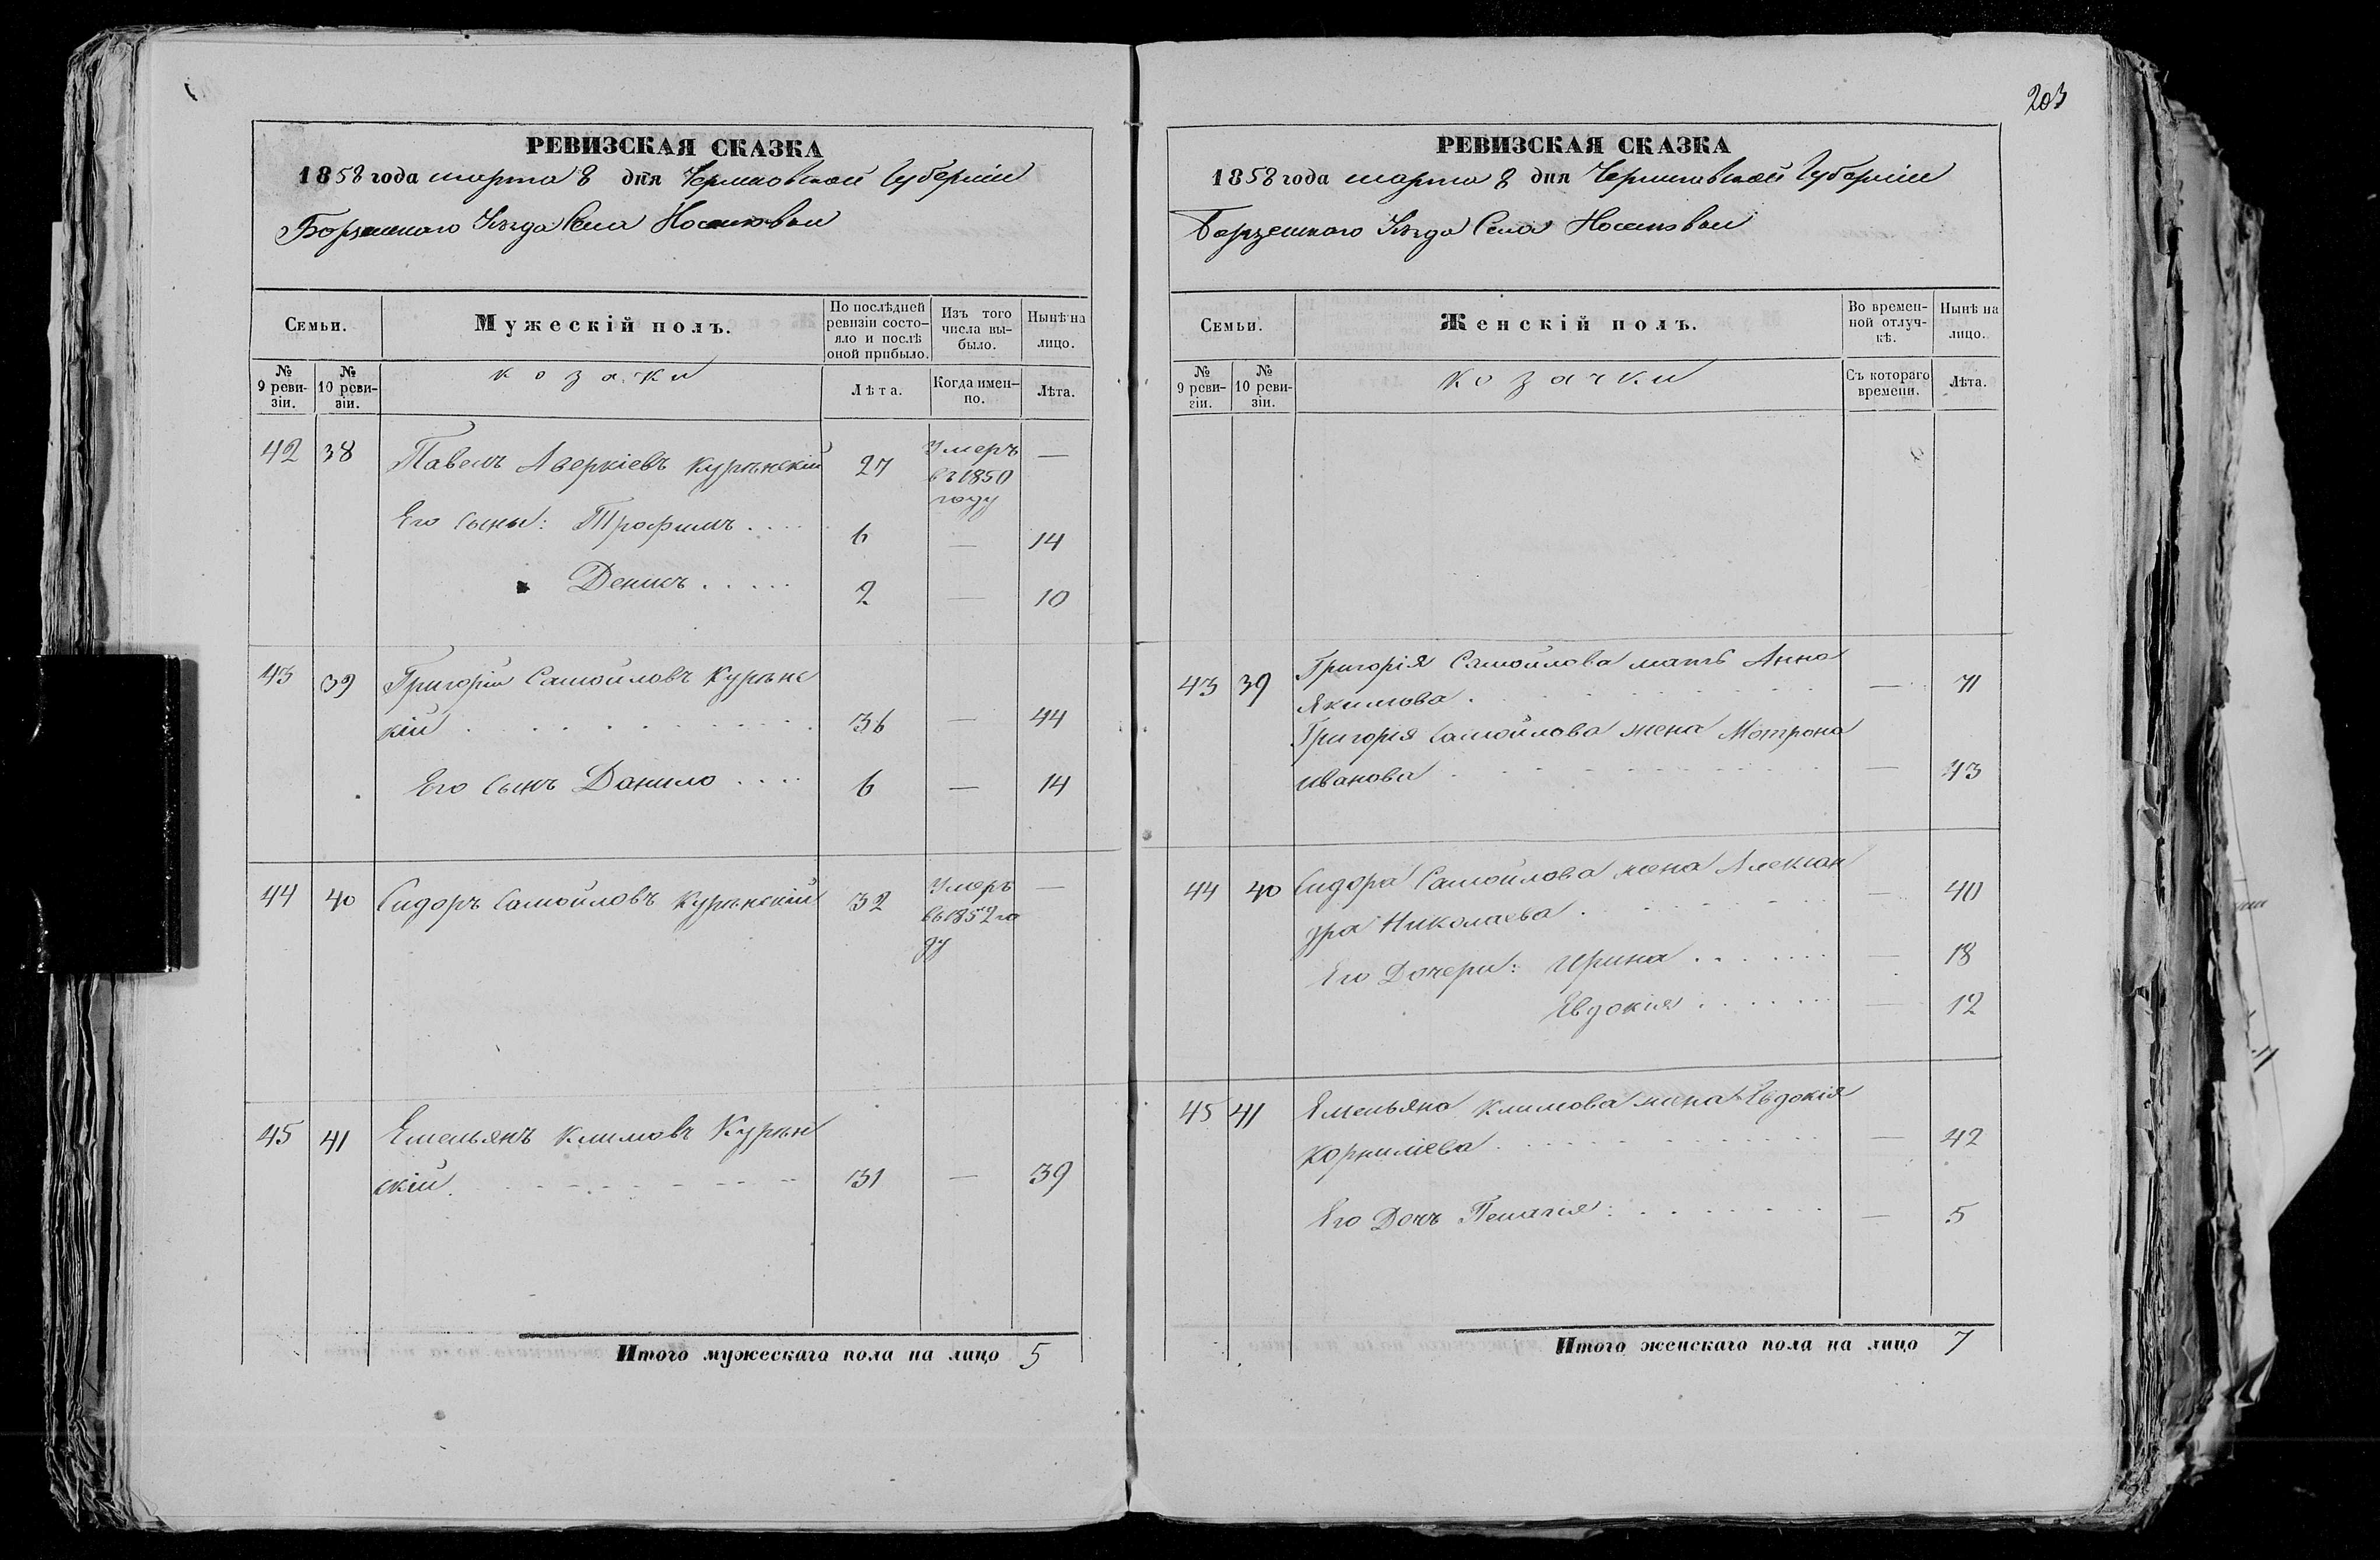 203
РЕВИЗСКАЯ СКАЗКА
1858 года марта 8 дня Черниговской Губерніи
Борзенского Уѣзда Села Носеловки
Семьи.
Мужескій полъ.
По послѣдней ревизіи состояло и послѣ оной прибыло.
Изъ того числа выбыло.
Нынѣ на лицо.
№ 9 ревизіи.
№ 10 ревизіи.
козаки
Лѣта.
Когда именно.
Лѣта.
42 38 Павелъ Аверкіевъ Курѣнскій 27 Умеръ —
въ 1850
году
Его сыны: Трофимъ . . . . 6 — 14
Денисъ . . . . . 2 — 10
43 39 Григорій Самойловъ Курѣнс
кій . . . . . . . . . 36 — 44
Его сынъ Данило . . . . 6 — 14
44 40 Сидоръ Самойловъ Курѣнскій 32 Умеръ —
въ 1852 го
ду
45 41 Емельянъ Климовъ Курѣн
скій. - - - - - - - - - 31 — 39
Итого мужескаго пола на лицо 5
РЕВИЗСКАЯ СКАЗКА
1858 года марта 8 дня Черниговской Губерніи
Борзенского Уѣзда Села Носеловки
Семьи.
Женскій полъ.
Во временной отлучкѣ.
Нынѣ на лицо.
№ 9 ревизіи.
№ 10 ревизіи.
козачки
Съ котораго времени.
Лѣта.
43 39 Григорія Самойлова мать Анна
Якимова . . . . . . . . . — 71
Григорія Самойлова жена Мотрона
Иванова . . . . . . . . . — 43
44 40 Сидора Самойлова жена Алексан
дра Николаева . . . . . . . . — 40
Его Дочери: Ирина . . . . . . . — 18
Евдокія . . . . . . . — 12
45 41 Емельяна Климова жена Евдокія
Корниліева . . . . . . . . . — 42
Его Дочь Пелагія: . . . . . . . — 5
Итого женскаго пола на лицо 7